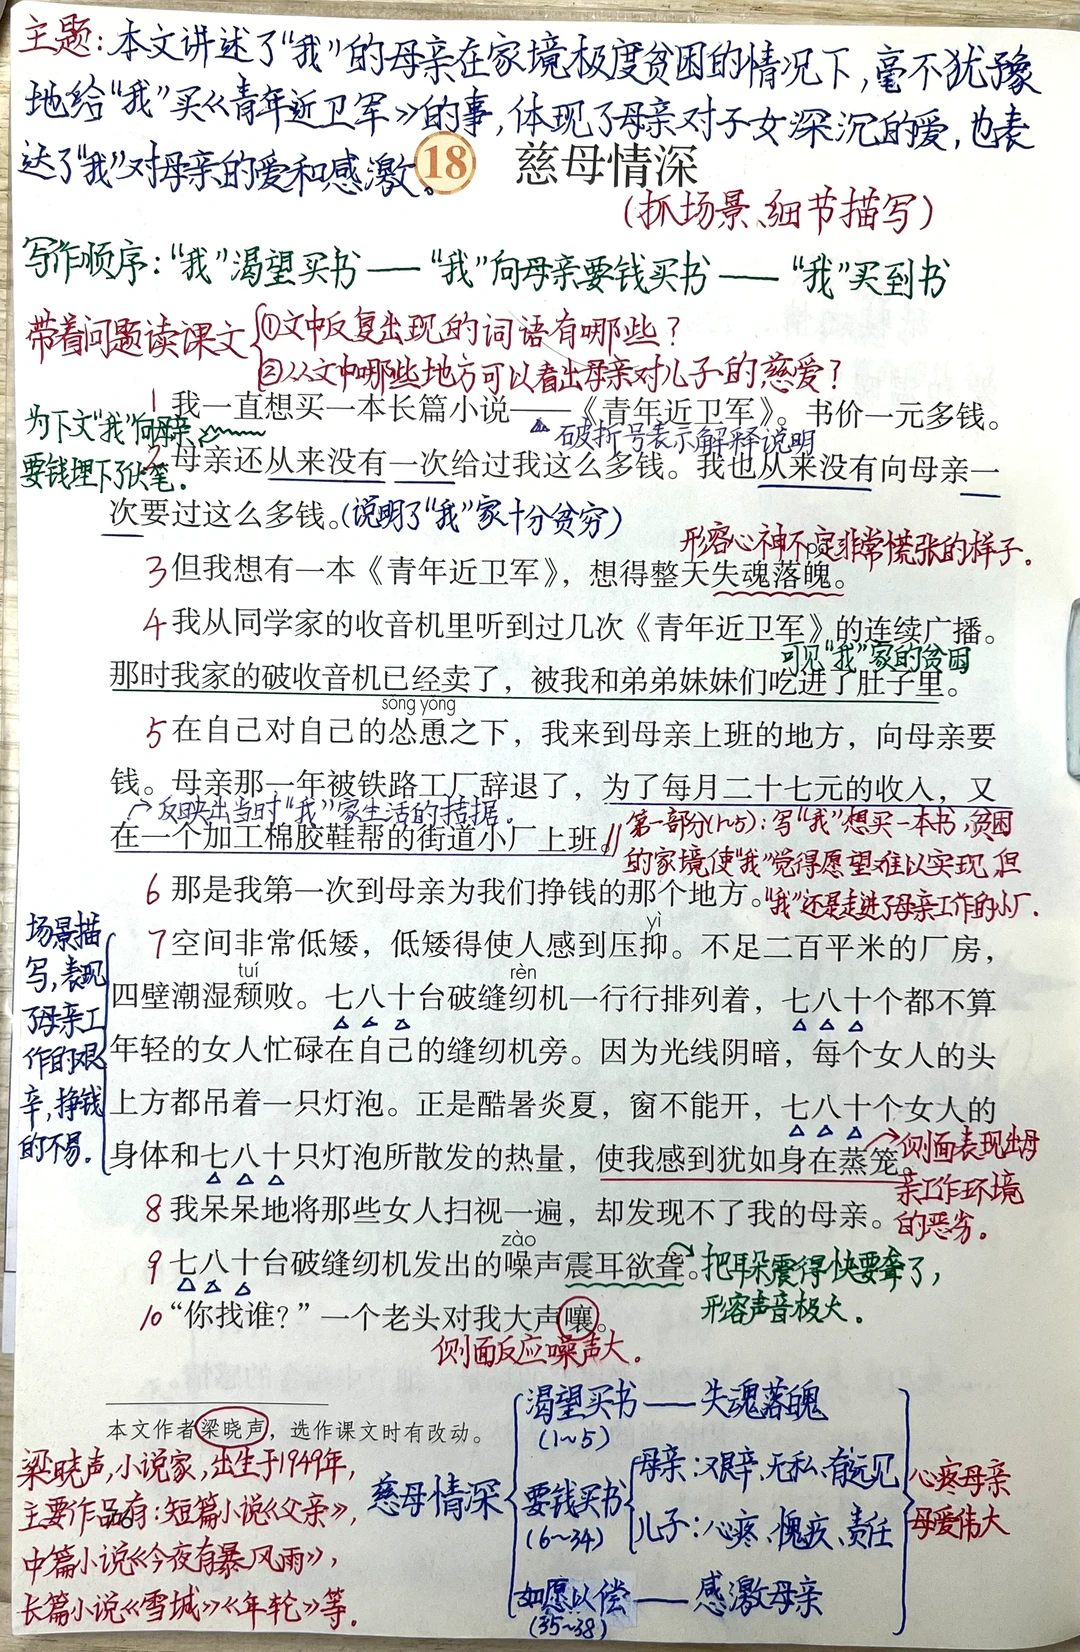 主题:本文讲述了“我”的母亲在家境极度贫困的情况下,毫不犹豫
地给“我”买《青年近卫军》的事,体现了母亲对子女深沉的爱,也表
达了“我”对母亲的爱和感激。
18 慈母情深
(抓场景、细节描写)
写作顺序:“我”渴望买书——“我”向母亲要钱买书——“我”买到书
带着问题读课文
①文中反复出现的词语有哪些?
②从文中哪些地方可以看出母亲对儿子的慈爱?
1 我一直想买一本长篇小说——《青年近卫军》。书价一元多钱。
为下文“我”向母亲
要钱埋下了伏笔。
破折号表示解释说明
2 母亲还从来没有一次给过我这么多钱。我也从来没有向母亲一
次要过这么多钱。(说明了“我”家十分贫穷)
形容心神不定非常慌张的样子。
pò
3 但我想有一本《青年近卫军》,想得整天失魂落魄。
4 我从同学家的收音机里听到过几次《青年近卫军》的连续广播。
可见“我”家的贫困
那时我家的破收音机已经卖了,被我和弟弟妹妹们吃进了肚子里。
sǒng yǒng
5 在自己对自己的怂恿之下,我来到母亲上班的地方,向母亲要
钱。母亲那一年被铁路工厂辞退了,为了每月二十七元的收入,又
反映出当时“我”家生活的拮据。
在一个加工棉胶鞋帮的街道小厂上班。
第一部分(1~5):写“我”想买一本书,贫困
的家境使“我”觉得愿望难以实现,但
“我”还是走进了母亲工作的小厂.
6 那是我第一次到母亲为我们挣钱的那个地方。
yì
7 空间非常低矮,低矮得使人感到压抑。不足二百平米的厂房,
tuí rèn
四壁潮湿颓败。七八十台破缝纫机一行行排列着,七八十个都不算
年轻的女人忙碌在自己的缝纫机旁。因为光线阴暗,每个女人的头
上方都吊着一只灯泡。正是酷暑炎夏,窗不能开,七八十个女人的
身体和七八十只灯泡所散发的热量,使我感到犹如身在蒸笼。
场景描
写,表现
了母亲工
作的艰
辛,挣钱
的不易.
侧面表现出母
亲工作环境
的恶劣。
8 我呆呆地将那些女人扫视一遍,却发现不了我的母亲。
zào
9 七八十台破缝纫机发出的噪声震耳欲聋。
把耳朵震得快要聋了,
形容声音极大。
10 “你找谁?”一个老头对我大声嚷。
侧面反应噪声大.
本文作者梁晓声,选作课文时有改动。
梁晓声,小说家,出生于1949年,
主要作品有:短篇小说《父亲》,
中篇小说《今夜有暴风雨》,
长篇小说《雪城》《年轮》等.
慈母情深
渴望买书——失魂落魄
(1~5)
要钱买书
(6~34)
母亲:艰辛、无私、有远见
儿子:心疼、愧疚、责任
如愿以偿——感激母亲
(35~38)
心疼母亲
母爱伟大